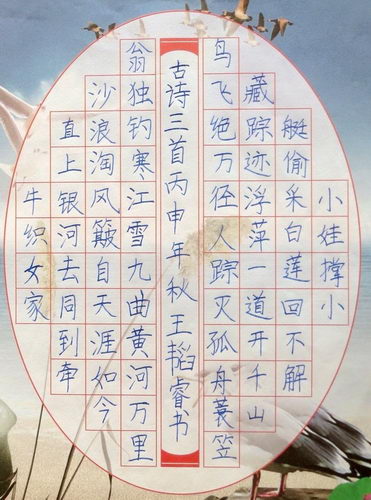 小娃撑小
艇偷采白莲回不解
藏踪迹浮萍一道开千山
鸟飞绝万径人踪灭孤舟蓑笠
古诗三首丙申年秋王韬睿书
翁独钓寒江雪九曲黄河万里
沙浪淘风簸自天涯如今
直上银河去同到牵
牛织女家